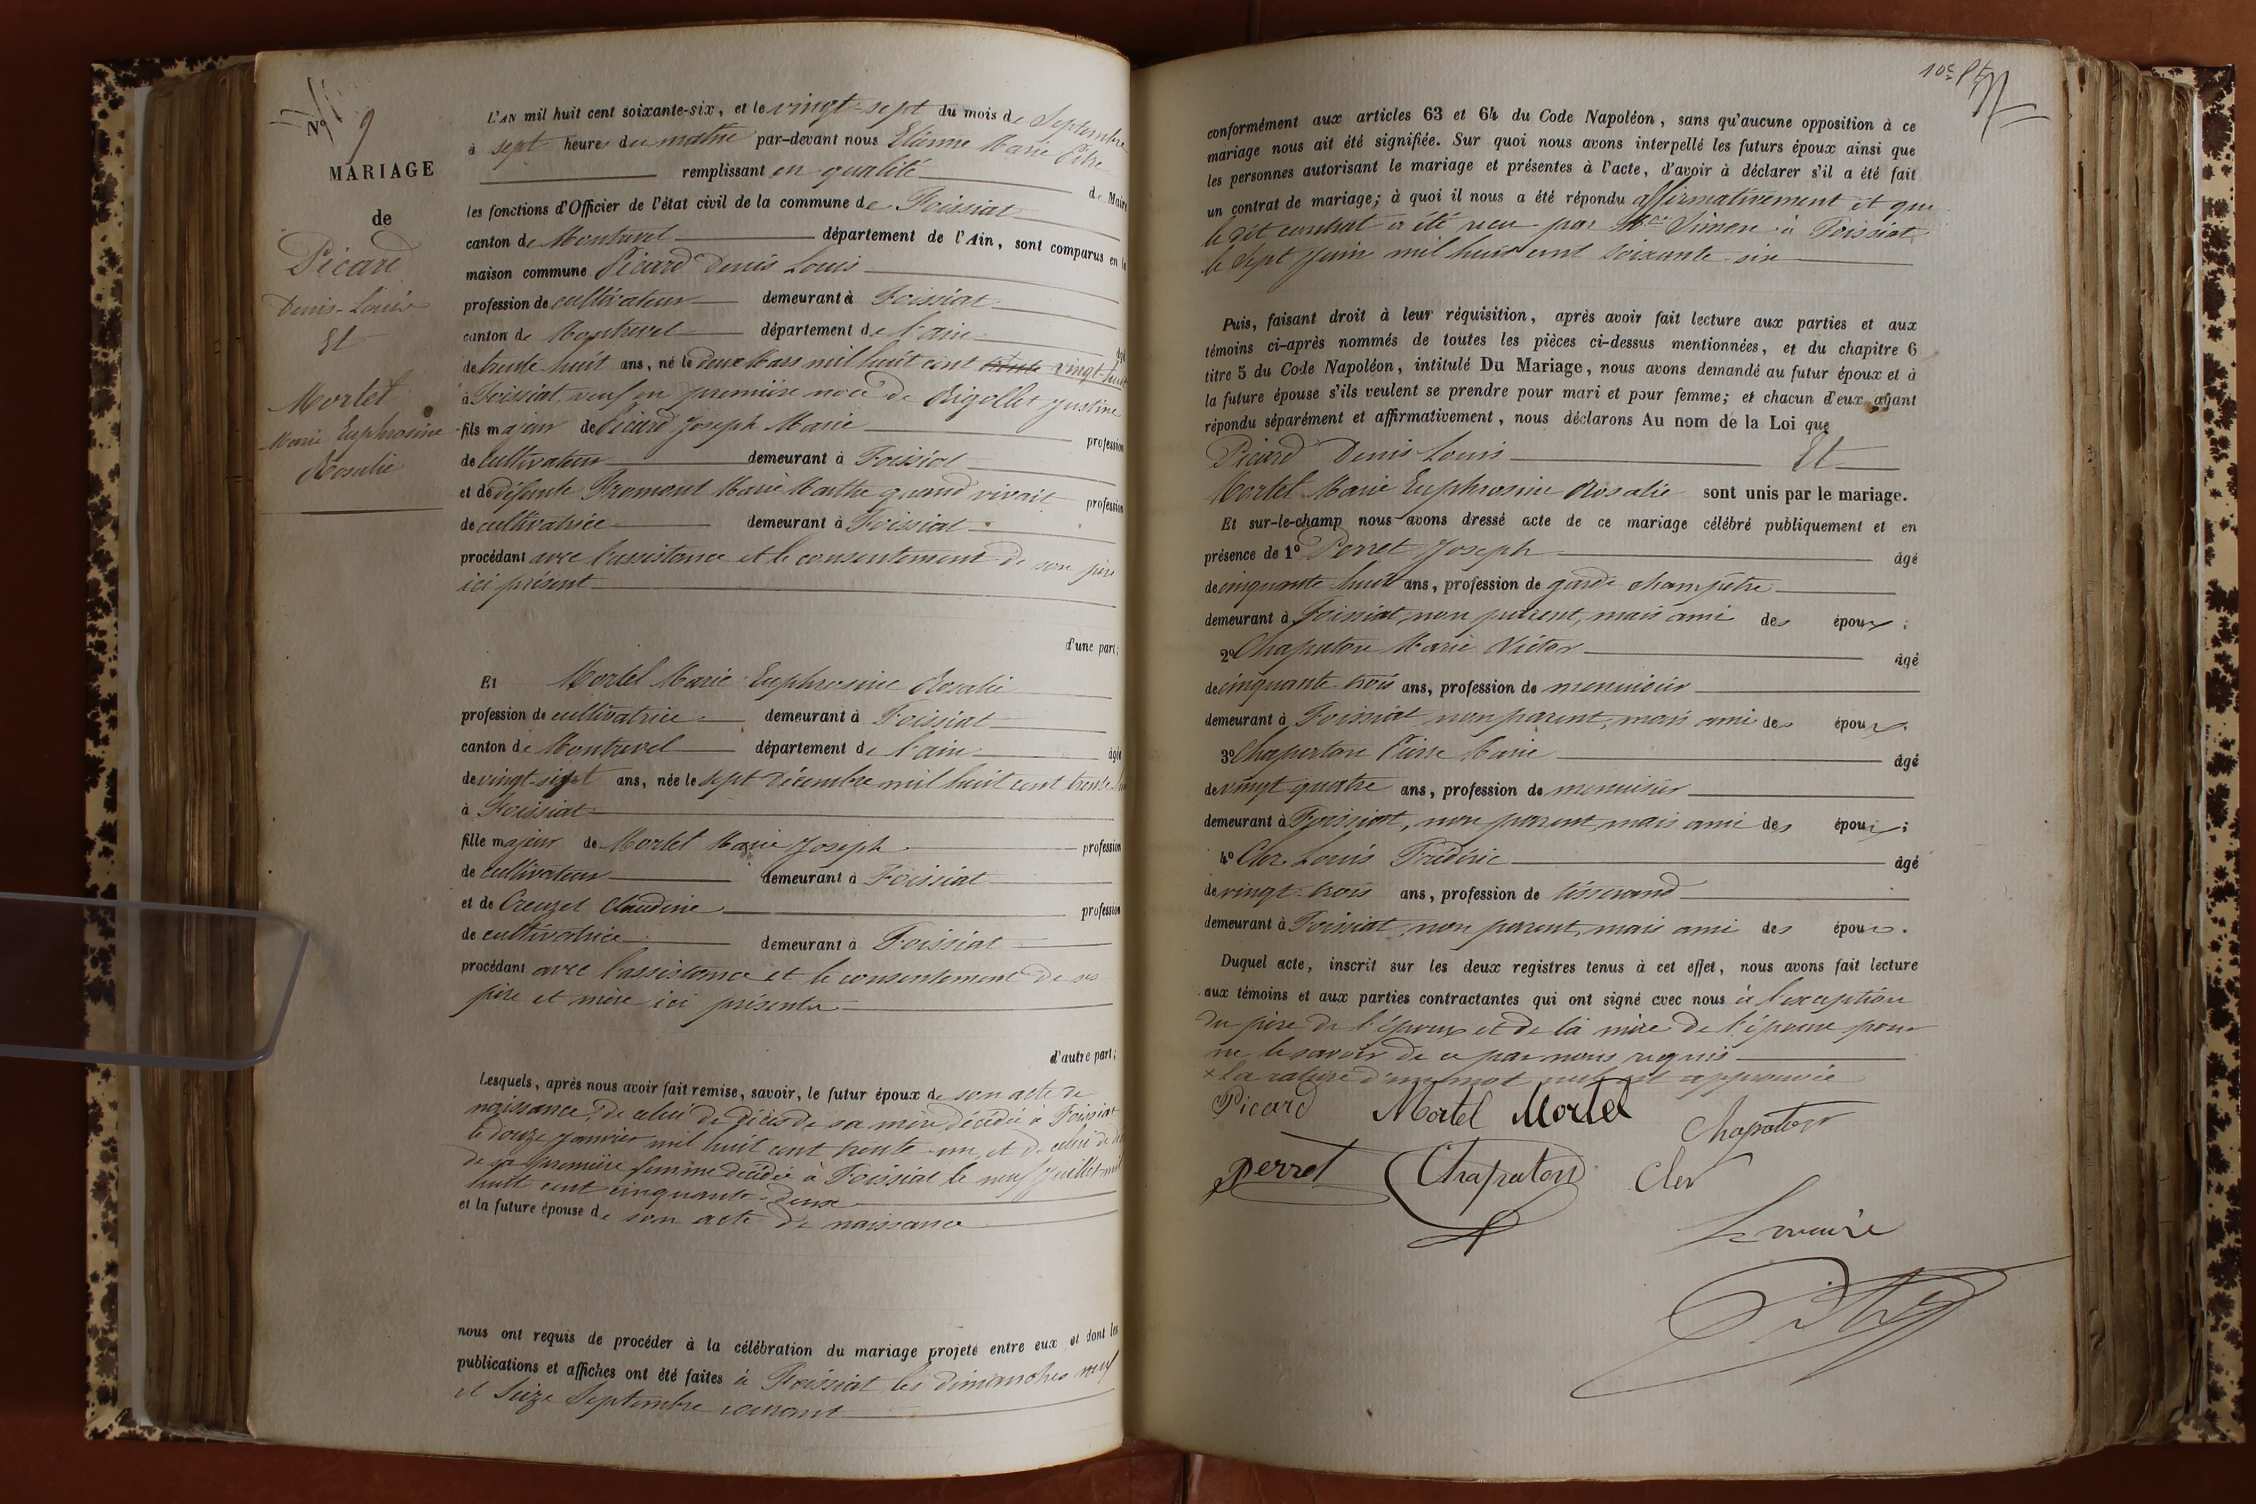 Nº 9
MARIAGE
de
Picard
Denis-Louis
Et
Mortel
Marie Euphrosine
Rosalie
L'AN mil huit cent soixante-six, et le vingt-sept du mois de Septembre
à sept heures du matin par-devant nous Etienne Marie Pitre
remplissant en qualité de Maire
les fonctions d'Officier de l'état civil de la commune de Foissiat
canton de Montrevel département de l'Ain, sont comparus en la
maison commune Picard Denis Louis
profession de cultivateur demeurant à Foissiat
canton de Montrevel département de l'ain âgé
de trente huit ans, né le deux Mars mil huit cent trente vingt huit
à Foissiat, veuf en première noce de Rigollet Justine
fils majeur de Picard Joseph Marie profession
de cultivateur demeurant à Foissiat
et de défunte Fromont Marie Marthe quand vivait profession
de cultivatrice demeurant à Foissiat
procédant avec l'assistance et le consentement de son père
ici présent
d'une part;
Et Mortel Marie Euphrosine Rosalie
profession de cultivatrice demeurant à Foissiat
canton de Montrevel département de l'ain âgée
de vingt-sept ans, née le sept Décembre mil huit cent trente huit
à Foissiat
fille majeur de Mortel Marie Joseph profession
de cultivateur demeurant à Foissiat
et de Creuzet Claudine profession
de cultivatrice demeurant à Foissiat
procédant avec l'assistance et le consentement de ses
père et mère ici présents
d'autre part;
Lesquels, après nous avoir fait remise, savoir, le futur époux de son acte de
naissance, de celui de décès de sa mère décédée à Foissiat
le douze Janvier mil huit cent trente-un, et de celui de
de sa première femme décédée à Foissiat le neuf Juillet mil
huit cent cinquante-deux
et la future épouse de son acte de naissance
nous ont requis de procéder à la célébration du mariage projeté entre eux et dont les
publications et affiches ont été faites à Foissiat les dimanches neuf
et Seize Septembre courant
10e
conformément aux articles 63 et 64 du Code Napoléon, sans qu'aucune opposition à ce
mariage nous ait été signifiée. Sur quoi nous avons interpellé les futurs époux ainsi que
les personnes autorisant le mariage et présentes à l'acte, d'avoir à déclarer s'il a été fait
un contrat de mariage; à quoi il nous a été répondu affirmativement et que
le dit contrat a été reçu par Me Simon à Foissiat
le Sept Juin mil huit cent soixante-six
Puis, faisant droit à leur réquisition, après avoir fait lecture aux parties et aux
témoins ci-après nommés de toutes les pièces ci-dessus mentionnées, et du chapitre 6
titre 5 du Code Napoléon, intitulé Du Mariage, nous avons demandé au futur époux et à
la future épouse s'ils veulent se prendre pour mari et pour femme; et chacun d'eux ayant
répondu séparément et affirmativement, nous déclarons Au nom de la Loi que
Picard Denis Louis Et
Mortel Marie Euphrosine Rosalie sont unis par le mariage.
Et sur-le-champ nous avons dressé acte de ce mariage célébré publiquement et en
présence de 1º Perret Joseph âgé
de cinquante huit ans, profession de garde champêtre
demeurant à Foissiat, non parent, mais ami des époux;
2º Chapaton Marie Victor âgé
de cinquante-trois ans, profession de menuisier
demeurant à Foissiat, non parent, mais ami des époux.
3º Chapaton Pierre Marie âgé
de vingt quatre ans, profession de menuisier
demeurant à Foissiat, non parent, mais ami des époux;
4º Cler Louis Frédéric âgé
de vingt-trois ans, profession de tisserand
demeurant à Foissiat, non parent, mais ami des époux.
Duquel acte, inscrit sur les deux registres tenus à cet effet, nous avons fait lecture
aux témoins et aux parties contractantes qui ont signé avec nous à l'exception
du père de l'époux et de la mère de l'épouse pour
ne le savoir de ce par nous requis
x la rature d'un mot nul est approuvée
Picard Mortel Mortel Chapaton
Perret Chapaton Cler
Le maire
Pitre